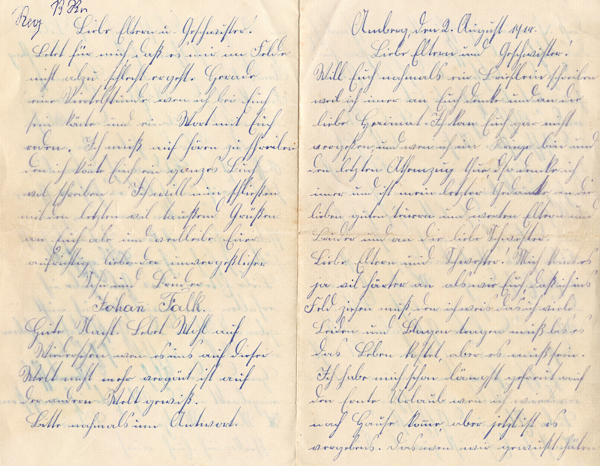 Liebe Eltern u. Geschwister.
Betet für mich daß es mir im Felde
nicht alzu schlecht ergeht. Gerade
eine Viertelstunde wen ich bei Euch
sein könte und ein Wort mit Euch
reden. Ich muß auf hören zu schreiben
den ich könte Euch ein ganzes Buch
vol schreiben. Ich will nun schließen
mit den letzten vil tausend Grüßen
an Euch ale und verbleibe Euer
aufrichtig liebender unvergeßlicher
Sohn und Bruder
Johan̄ Falk.
Gute Nacht Lebet Wohl auf
Wiedersehen wen es uns auf dieser
Welt nicht mehr vergönt ist auf
der anderen Welt gewiß.
Bitte nochmals um Antwort.
Amberg, den 2. August 1914.
Liebe Eltern und Geschwister!
Will Euch nochmals ein Brieflein schreiben
weil ich imer an Euch denke und an die
liebe Heimat. Ich kan Euch gar nicht
vergeßen und wen ich im Kampf bin und
den letzten Atemzug tue, so denke ich
imer und ist mein letzter Gedanke an die
lieben guten teuern und werten Eltern und
Brüder und an die liebe Schwester.
Liebe Eltern und Schwester. Mich komt es
ja vil härter an als wie Euch daß ich ins
Feld ziehen muß den ich weis das ich viele
Leiden und Plagen tragen muß bis es
das Leben kostet, aber es muß sein.
Ich habe mich schon längst gefreut auf
den Ernte Urlaub wen ich
nach Hause kome, aber jetzt ist es
vergebens. Das wen wir gewußt hätten